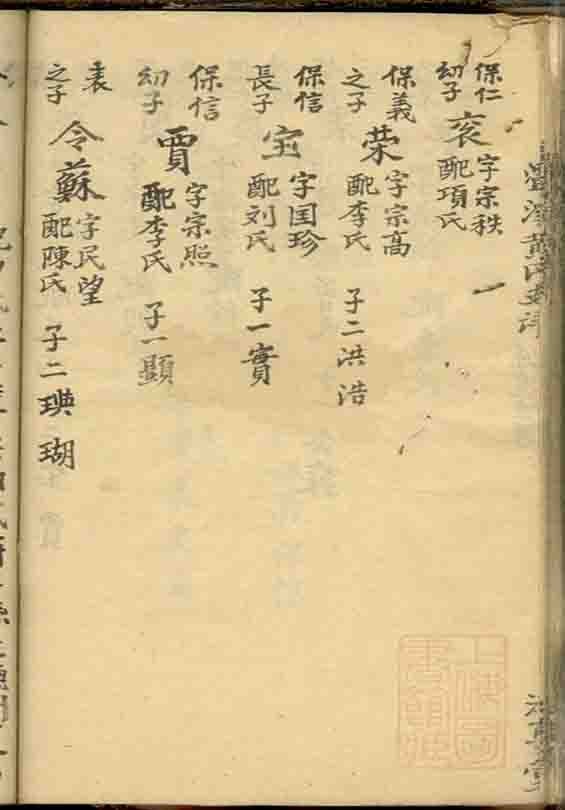 保仁
幼子
衮
字宗秩
配項氏
保義
之子
荣
字宗高
配李氏
子二洪浩
保信
長子
宝
字国珍
配刘氏
子一實
保信
幼子
賈
字宗照
配李氏
子一顯
表
之子
令蘇
字民望
配陳氏
子二瑛瑚